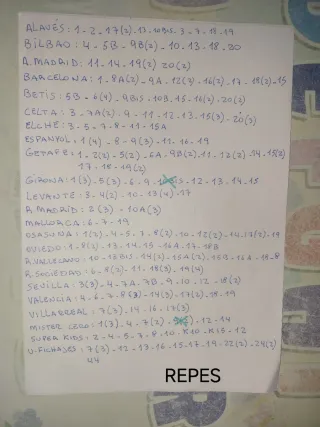 ALAVÉS: 1 - 2 - 17(2) - 13 - 10BIS - 3 - 7 - 18 - 19
BILBAO: 4 - 5B - 9B(2) - 10 - 13 - 18 - 20
A. MADRID: 11 - 14 - 19(2) 20(2)
BARCELONA: 1 - 8A(2) - 9A - 12(3) - 16(2) - 17 - 18(2) - 15
BETIS: 5B - 6(4) - 9BIS - 10B - 15 - 16(2) - 20(2)
CELTA: 3 - 7A(2) - 9 - 11 - 12 - 13 - 15(3) - 20(3)
ELCHE: 3 - 5 - 7 - 8 - 11 - 15A
ESPANYOL: 1(4) - 8 - 9(3) - 11 - 16 - 19
GETAFE: 1 - 2(2) - 5(2) - 6A - 9B(2) - 11 - 12(2) - 14 - 15(2)
17 - 18 - 19(2)
GIRONA: 1(3) - 5(3) - 6 - 9 - 3 - 12 - 13 - 14 - 15
LEVANTE: 3 - 4(2) - 10 - 13(4) - 17
R. MADRID: 2(3) - 10A(3)
MALLORCA: 6 - 7 - 19
OSASUNA: 1(2) - 4 - 5 - 7 - 8(2) - 10 - 12(2) - 14 - 17(2) - 19
OVIEDO: 1 - 8(2) - 13 - 14 - 15 - 16A - 17 - 18B
R. VALLECANO: 10 - 14(2) - 15A(2) - 16A - 18 - 8
R. SOCIEDAD: 6 - 8(2) - 11 - 18(3) - 19(4)
SEVILLA: 3(3) - 4 - 7A - 7B - 9 - 10 - 12 - 18(2)
VALENCIA: 4 - 6 - 7 - 8(3) - 14(3) - 17(2) - 18 - 19
VILLARREAL: 7(3) - 14 - 16 - 17(3)
MISTER CERO: 1(3) - 4 - 7(2) - 12 - 14
SUPER KIDS: 2 - 4 - 5 - 7 - 8 - 10 - 12
U. FICHAJES: 7(3) - 12 - 13 - 16 - 15 - 17 - 19 - 22(2) - 24(2)
44
REPES